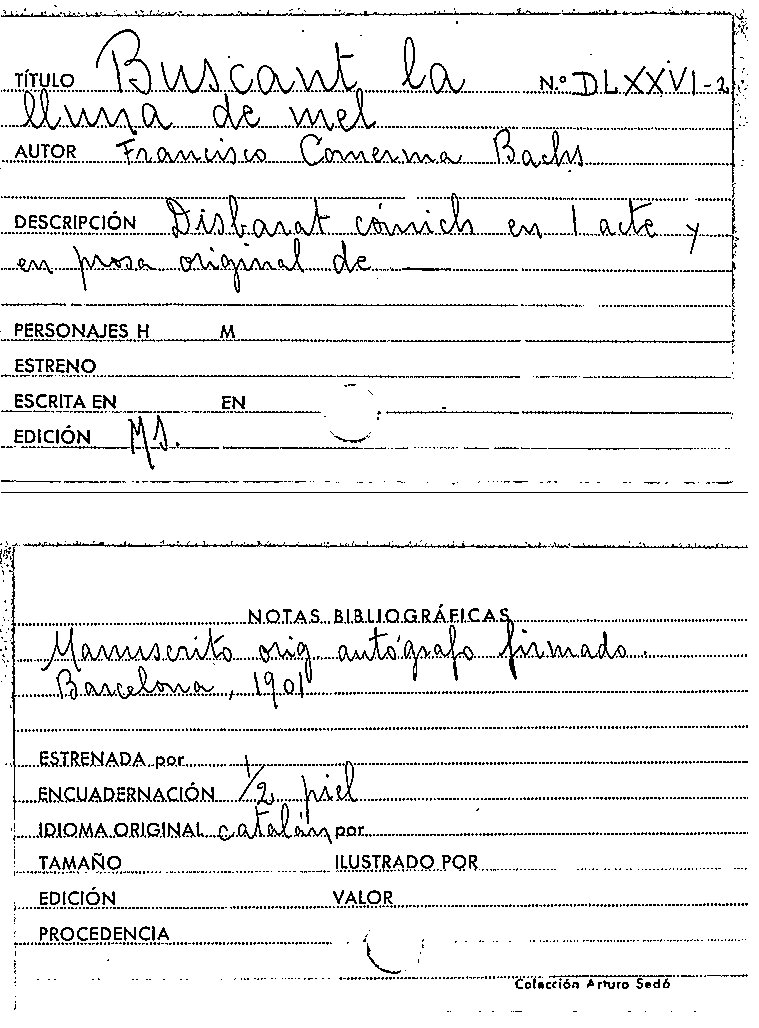 TÍTULO Buscant la N.º DLXXVI-2
lluna de mel
AUTOR Francisco Comerma Bachs
DESCRIPCIÓN Disbarat cómich en 1 acte y
en prosa original de
PERSONAJES H M
ESTRENO
ESCRITA EN EN
EDICIÓN MS.
NOTAS BIBLIOGRÁFICAS
Manuscrito orig autógrafo firmado.
Barcelona, 1901
ESTRENADA por
ENCUADERNACIÓN 1/2 piel
IDIOMA ORIGINAL catalán por
TAMAÑO ILUSTRADO POR
EDICIÓN VALOR
PROCEDENCIA
Colección Arturo Sedó